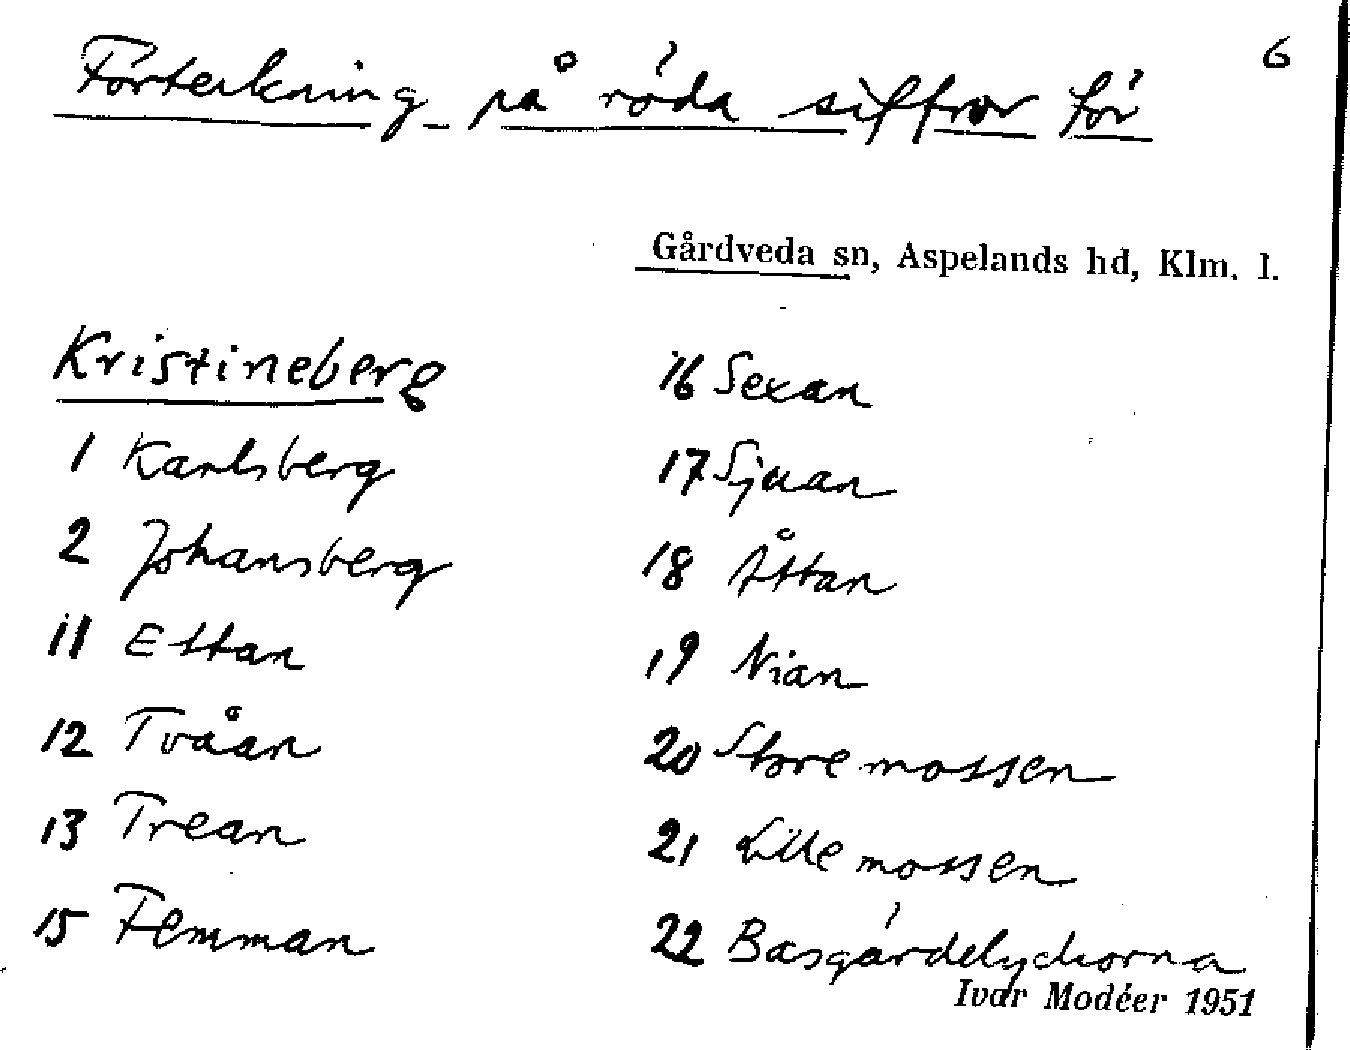 6
Förteckning på röda siffror för
Gårdveda sn, Aspelands hd, Klm. l.
Kristineberg
1 Karlsberg
2 Johansberg
11 Ettan
12 Tvåan
13 Trean
15 Femman
16 Sexan
17 Sjuan
18 Åttan
19 Nian
20 Store mossen
21 Lille mossen
22 Basgårdelyckorna
Ivar Modéer 1951